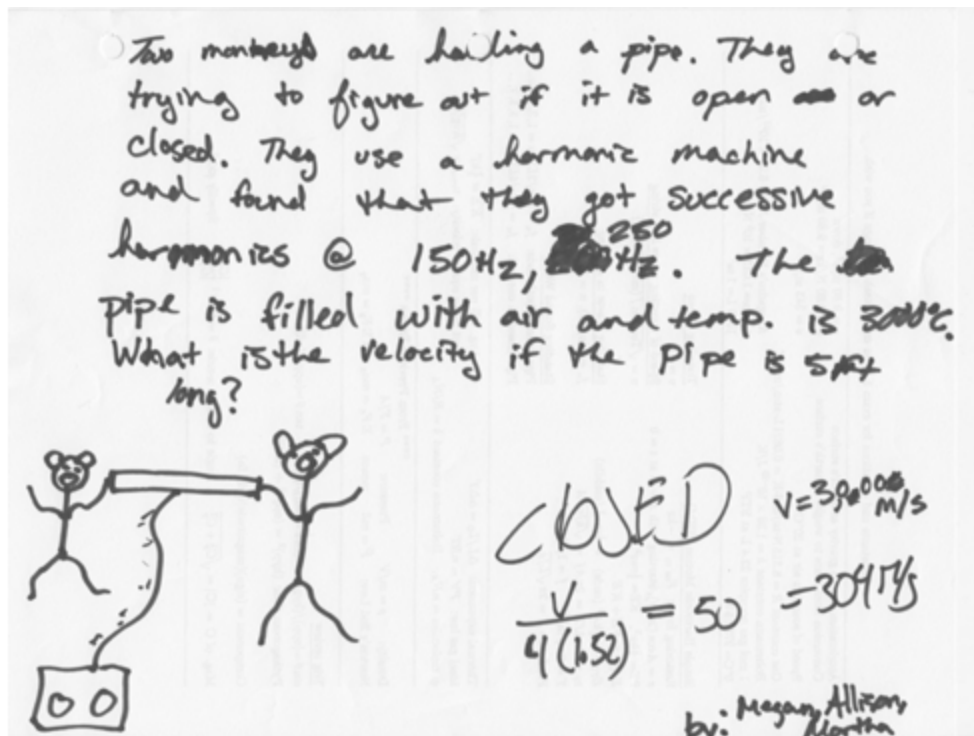 Two monkeys are holding a pipe. They are
trying to figure out if it is open or
closed. They use a harmonic machine
and found that they got successive
harmonics @ 150Hz, 250
Hz. The
pipe is filled with air and temp. is
What is the velocity if the pipe is 5
long?
CLOSED
V=
m/s
V
4(1.52)
= 50
=304 m/s
by: Megan, Allison,
Martha